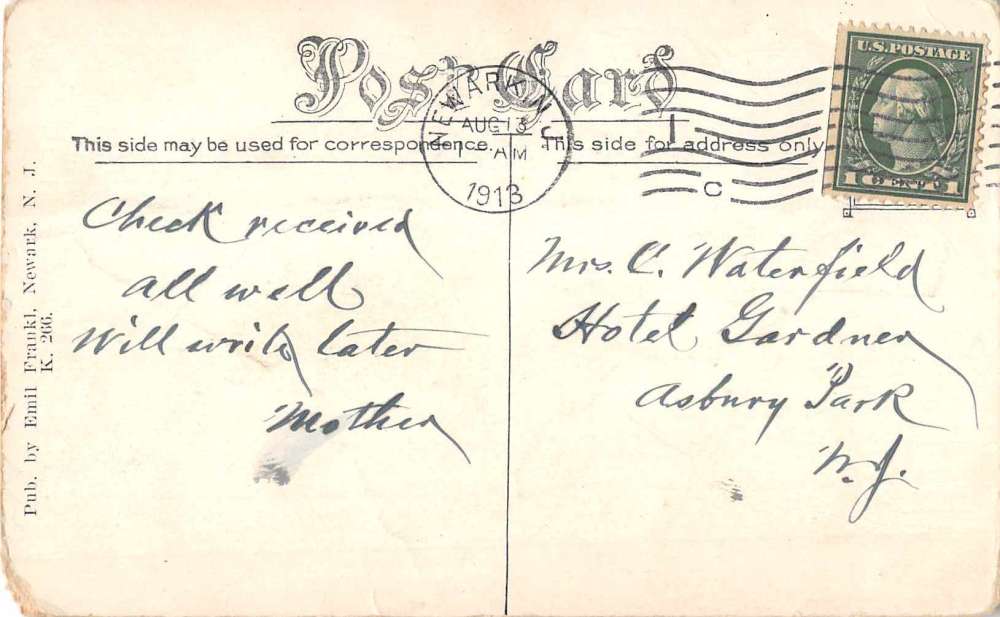 Post Card
This side may be used for correspondence.
This side for address only.
NEWARK N.J.
AUG 13
1 AM
1913
C
U.S. POSTAGE
1 CENT 1
Pub. by Emil Frankl, Newark, N. J.
K. 266.
Check received
All well
Will write later
Mother
Mrs. C. Waterfield
Hotel Gardner
Asbury Park
N.J.